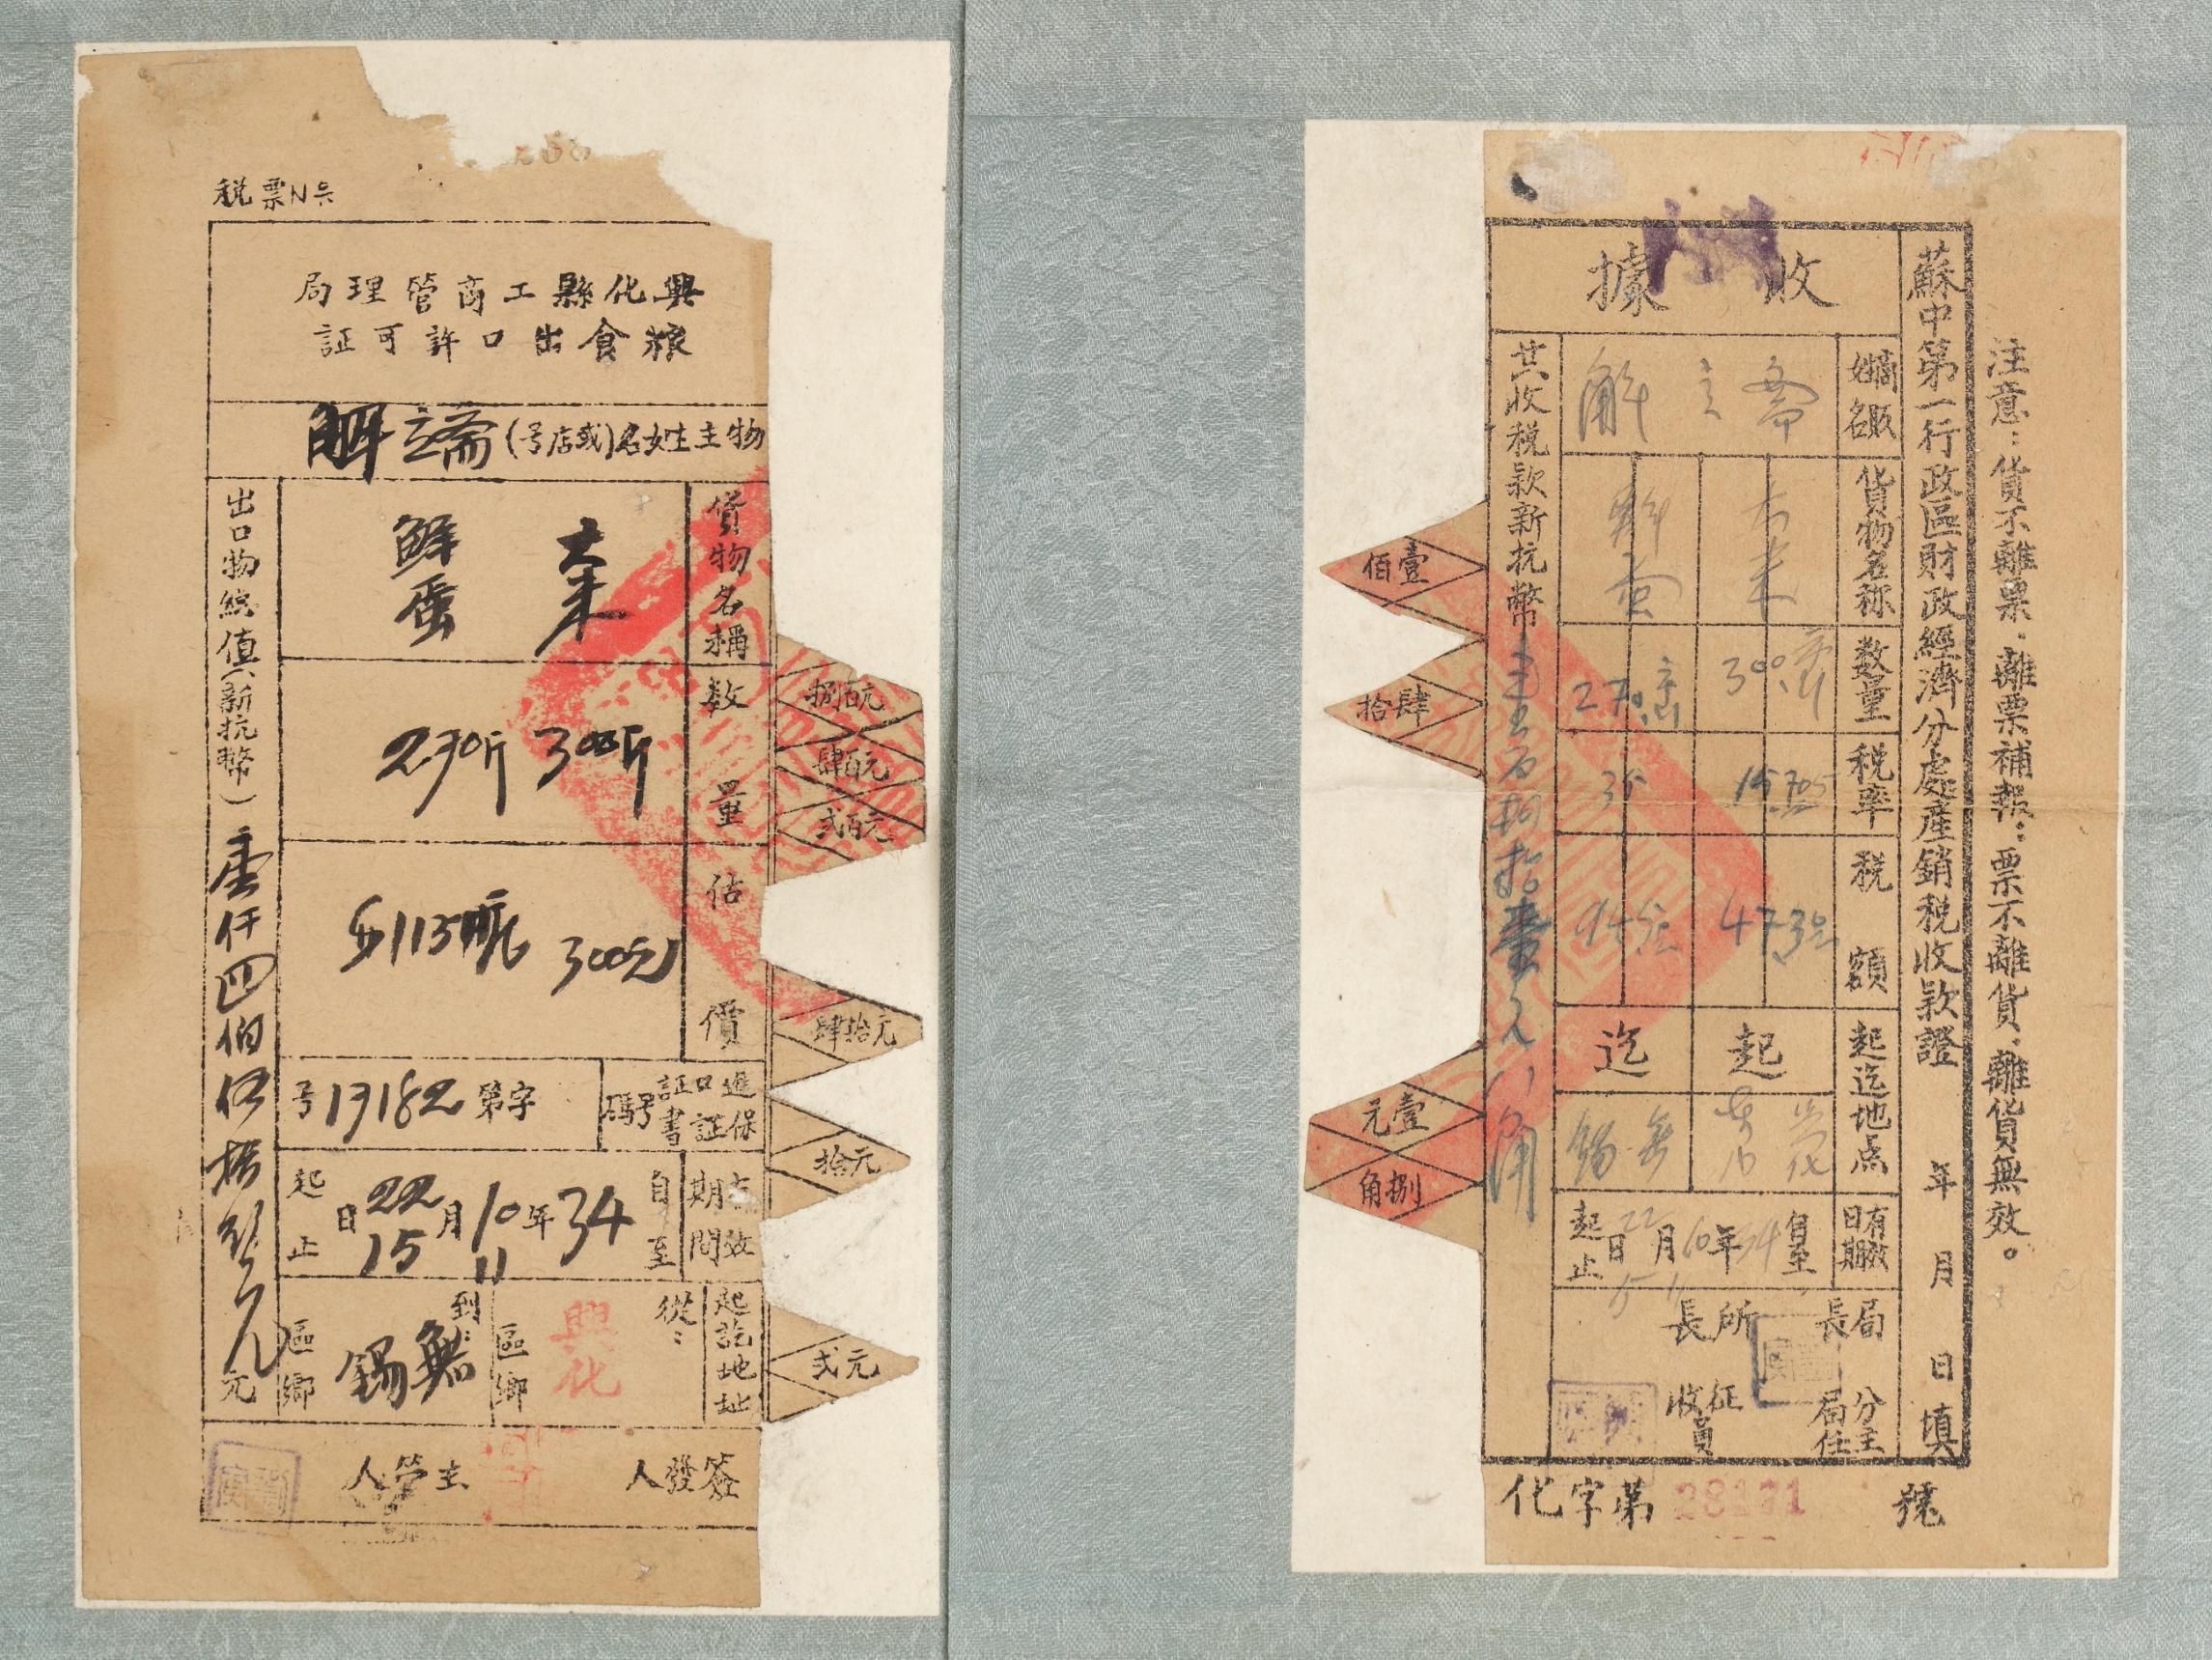 税票N号
興化縣工商管理局
粮食出口許可証
物主姓名(或店号) 解立斋
貨物名稱 大米 鮮蛋
数量 300斤 270斤
估價 300元
進口証保証書号碼 字第13182号
有效期間 自至 34年10月22日 11 15 起止
起訖地址 從: 興化 區鄉 到: 無錫 區鄉
出口物総值(新抗幣)壹仟四佰伍拾元
簽發人 主管人
捌百元
肆百元
弍百元
肆拾元
拾元
弍元
注意:貨不離票.離票補報:票不離貨.離貨無效。
蘇中第一行政區財政經濟分處產銷税收款證 年 月 日填
收據
解立斋
貨物名称 大米 鮮蛋
数量 300斤 270斤
税率 35
税額 473元
起迄地点 起 興化 迄 無錫
有效日期 自至 34年10月22日 11 15 起止
局長 分局主任
所長 征收員
共收税款新抗幣壹百肆拾壹元八角
壹佰
肆拾
壹元
捌角
化字第 28171 號